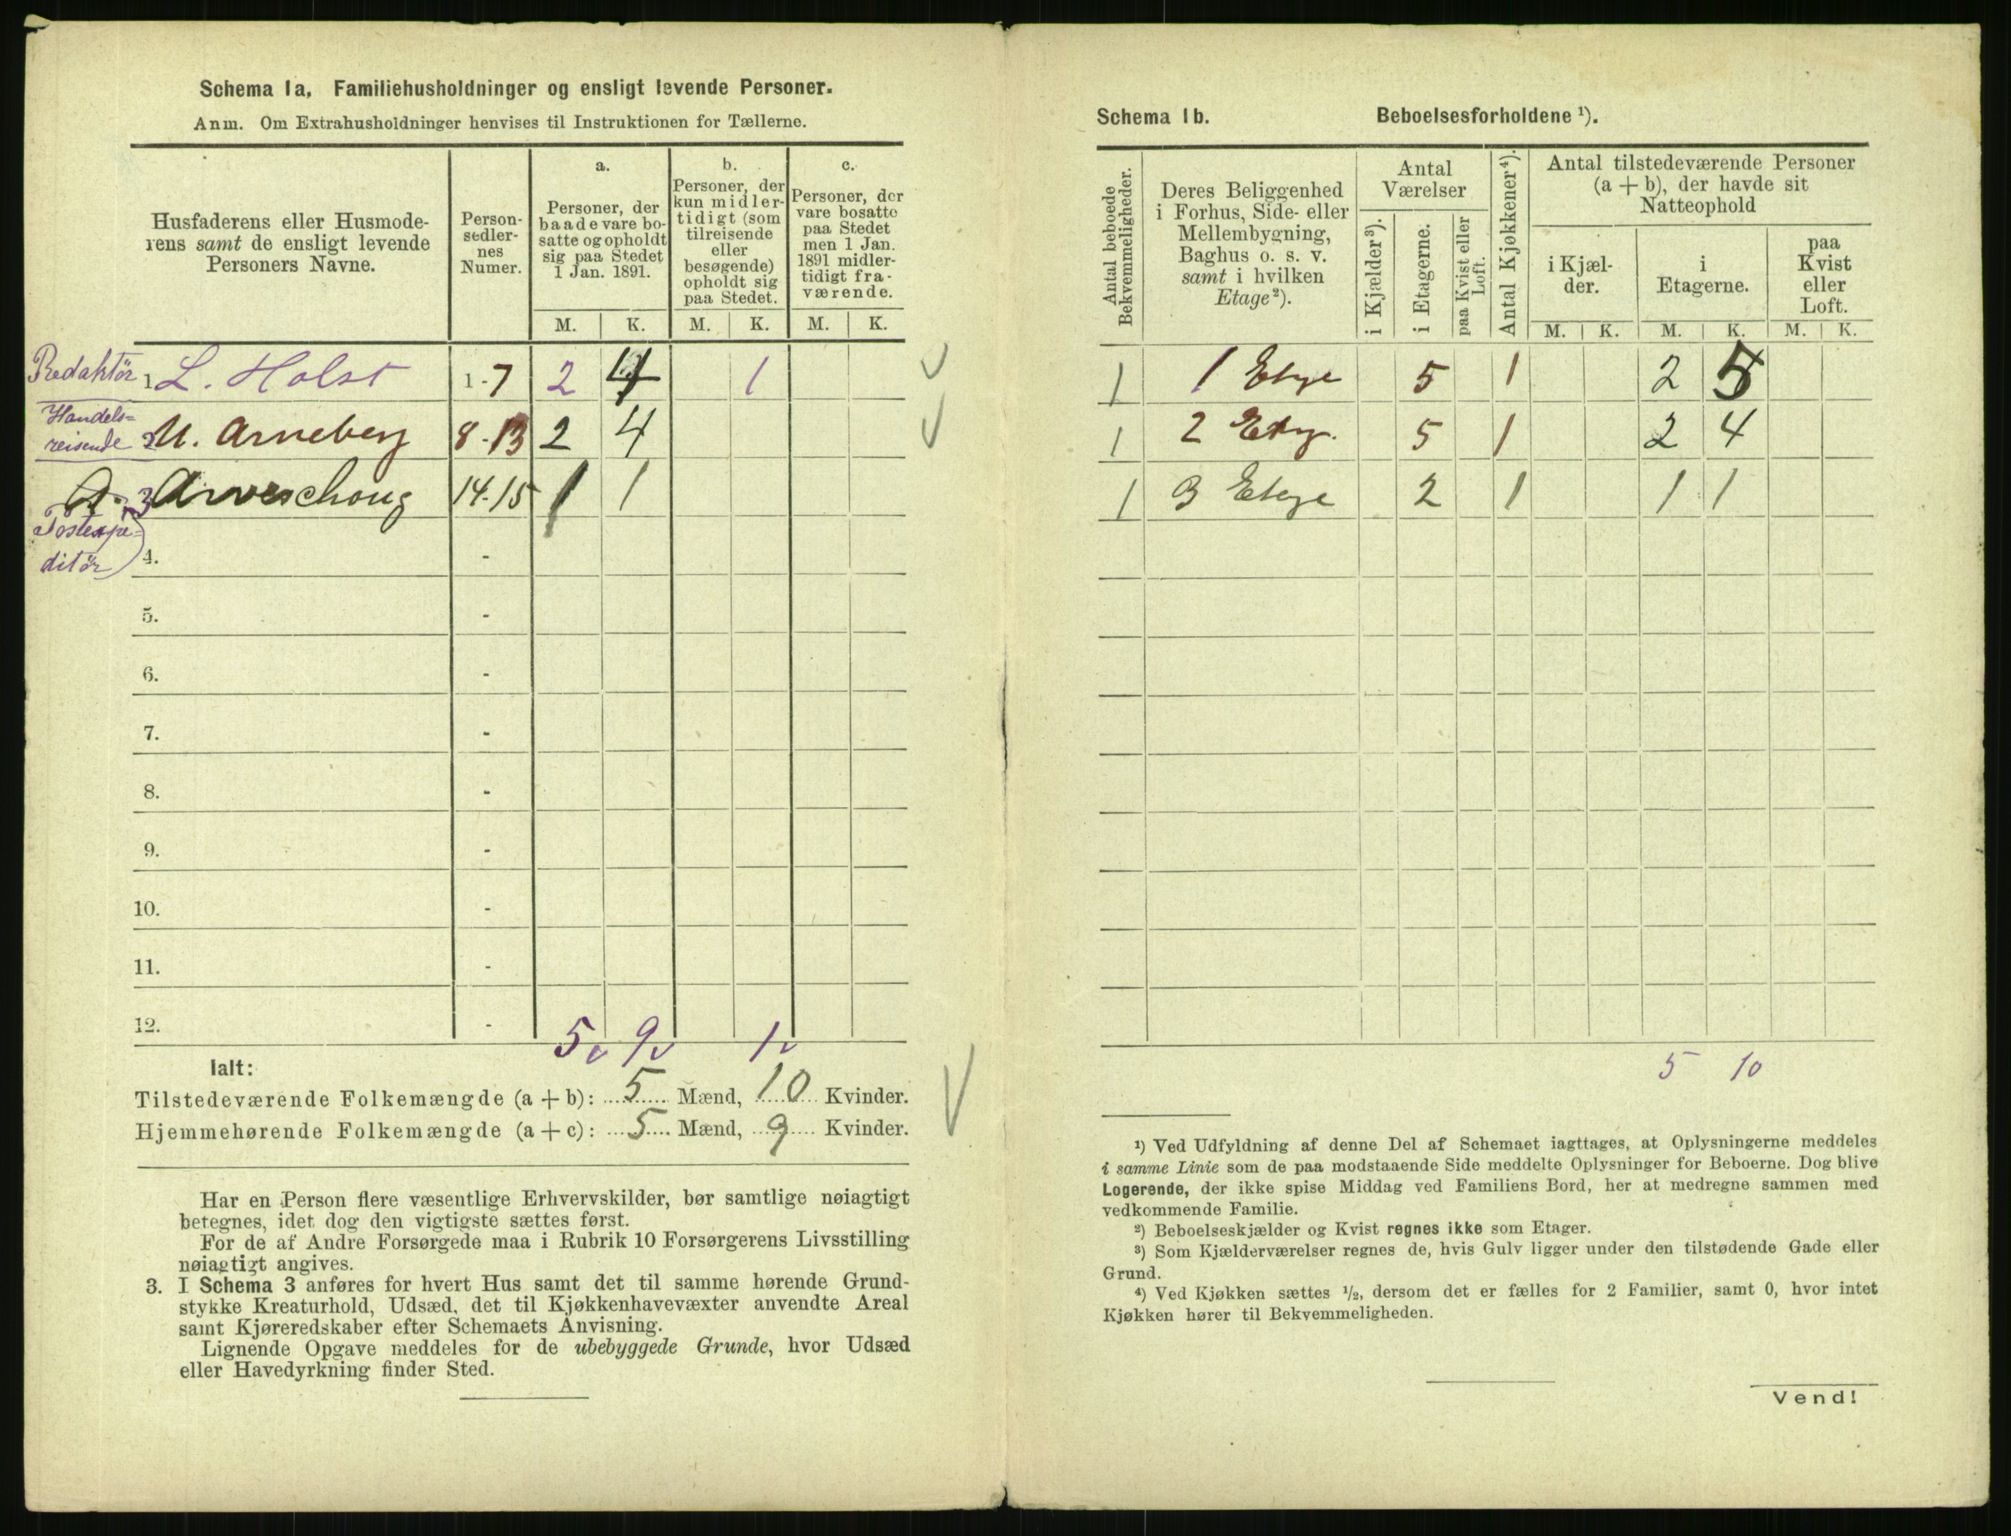 Schema 1a. Familiehusholdninger og ensligt levende Personer.
Anm. Om Extrahusholdninger henvises til Instruktionen for Tællerne.
Husfaderens eller Husmoderens samt de ensligt levende Personers Navne.
Personsedlernes Numer.
a.
Personer, der baade vare bosatte og opholdt sig paa Stedet 1 Jan. 1891.
b.
Personer, der kun midlertidigt (som tilreisende eller besøgende) opholdt sig paa Stedet.
c.
Personer, der vare bosatte paa Stedet men 1 Jan. 1891 midlertidigt fraværende.
M. K. M. K. M. K.
Redaktör 1. L. Holst 1-7 2 4 1
Handelsreisende 2 M. Arneberg 8-13 2 4
A. Arveschoug 3 14-15 1 1
Postexpeditör
4. -
5. -
6. -
7. -
8. -
9. -
10. -
11. -
12. -
5 9 1
Ialt:
Tilstedeværende Folkemængde (a + b): 5 Mænd, 10 Kvinder.
Hjemmehørende Folkemængde (a + c): 5 Mænd, 9 Kvinder.
Har en Person flere væsentlige Erhvervskilder, bør samtlige nøiagtigt
betegnes, idet dog den vigtigste sættes først.
For de af Andre Forsørgede maa i Rubrik 10 Forsørgerens Livsstilling
nøiagtigt angives.
3. I Schema 3 anføres for hvert Hus samt det til samme hørende Grund-
stykke Kreaturhold, Udsæd, det til Kjøkkenhavevæxter anvendte Areal
samt Kjøreredskaber efter Schemaets Anvisning.
Lignende Opgave meddeles for de ubebyggede Grunde, hvor Udsæd
eller Havedyrkning finder Sted.
Schema 1b. Beboelsesforholdene ¹).
Antal beboede Bekvemmeligheder.
Deres Beliggenhed i Forhus, Side- eller Mellembygning, Baghus o. s. v. samt i hvilken Etage ²).
Antal Værelser
i Kjælder ³).
i Etagerne.
paa Kvist eller Loft.
Antal Kjøkkener ⁴).
Antal tilstedeværende Personer (a + b), der havde sit Natteophold
i Kjælder.
i Etagerne.
paa Kvist eller Loft.
M. K. M. K. M. K.
1 1 Etage 5 1 2 5
1 2 Etag. 5 1 2 4
1 3 Etage 2 1 1 1
5 10
¹) Ved Udfyldning af denne Del af Schemaet iagttages, at Oplysningerne meddeles
i samme Linie som de paa modstaaende Side meddelte Oplysninger for Beboerne. Dog blive
Logerende, der ikke spise Middag ved Familiens Bord, her at medregne sammen med
vedkommende Familie.
²) Beboelseskjælder og Kvist regnes ikke som Etager.
³) Som Kjælderværelser regnes de, hvis Gulv ligger under den tilstødende Gade eller
Grund.
⁴) Ved Kjøkken sættes ½, dersom det er fælles for 2 Familier, samt 0, hvor intet
Kjøkken hører til Bekvemmeligheden.
Vend!